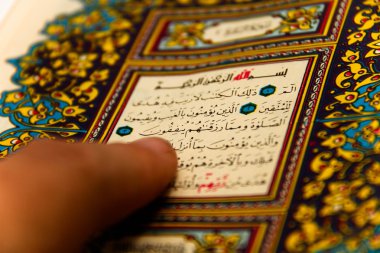 بِسْمِ اللَّهِ الرَّحْمٰنِ الرَّحِيمِ
الٓمٓ ذٰلِكَ الْكِتَابُ لَا رَيْبَ فِيهِ هُدًى
لِلْمُتَّقِينَ الَّذِينَ يُؤْمِنُونَ بِالْغَيْبِ وَيُقِيمُونَ
الصَّلٰوةَ وَمِمَّا رَزَقْنَاهُمْ يُنْفِقُونَ
وَالَّذِينَ يُؤْمِنُونَ بِمَا أُنْزِلَ
وَبِالْاٰخِرَةِ هُمْ يُوقِنُونَ
رَبِّهِمْ